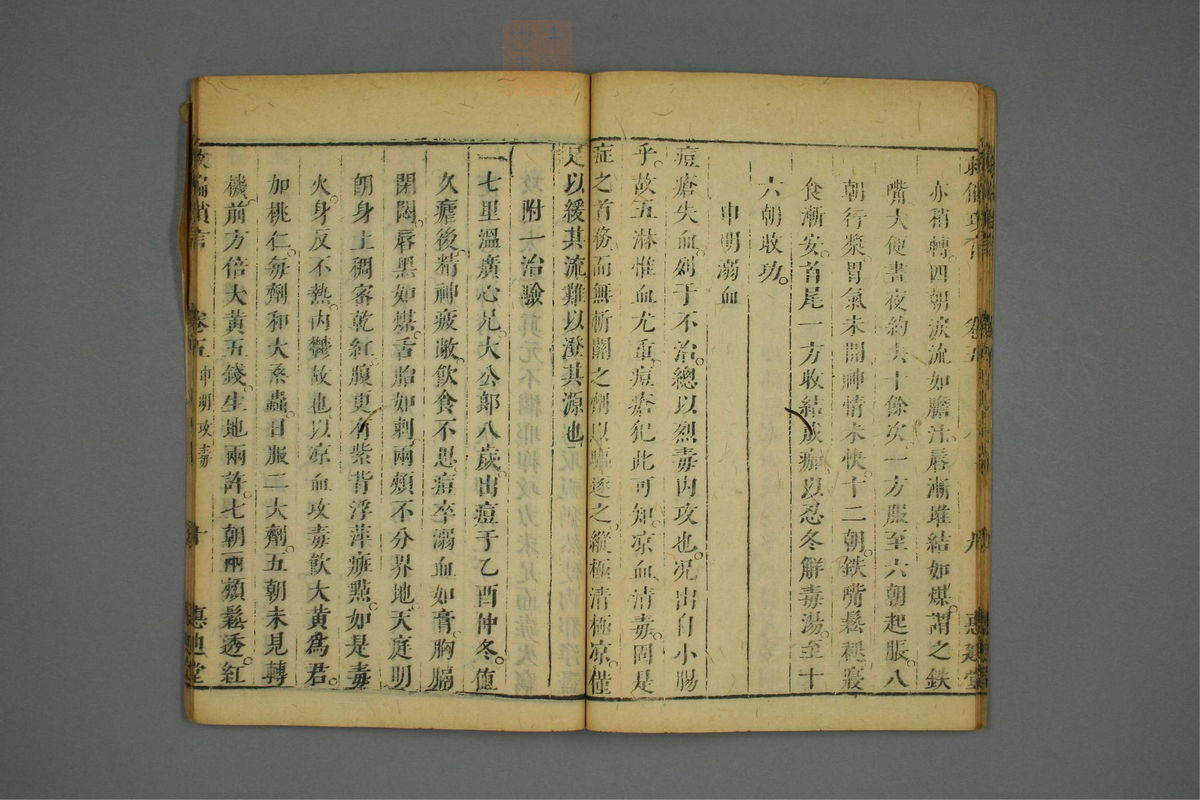 亦稍轉。四朝淚流如膽汁。唇漸堆結如煤。謂之鉄
嘴。大便晝夜約共十餘次。一方服至六朝起脹。八
朝行漿。胃氣未開。神情未快。十二朝。鉄嘴鬆褪。寢
食漸安。首尾一方收結成痂。以忍冬解毒湯。至十
六朝收功。
申明溺血
痘瘡失血。列于不治。總以烈毒內攻也。况出自小腸
乎。故五淋惟血尤重。痘瘡犯此可知。凉血清毒。固是
症之首務。而無斬關之劑以驅逐之。縱極清極凉。僅
足以緩其流。難以澄其源也。
附一治驗
一七里溫廣心兄。大公郎八歲。出痘于乙酉仲冬。值
久瘧後。精神疲敝。飲食不思。痘夲溺血如膏。胸膈
閉悶。唇黑如煤。舌胎如刺。兩頰不分界地。天庭明
朗。身上稠密乾紅。腹更有紫背浮萍瘢點。如是毒
火。身反不熱。內鬱故也。以凉血攻毒飲。大黃為君。
加桃仁。每劑和大桑蟲。日服二大劑。五朝未見轉
機。前方倍大黃五錢。生地兩許。七朝兩頰鬆透。紅
救偏瑣言 卷五 申明攻毒 十 惠迪堂